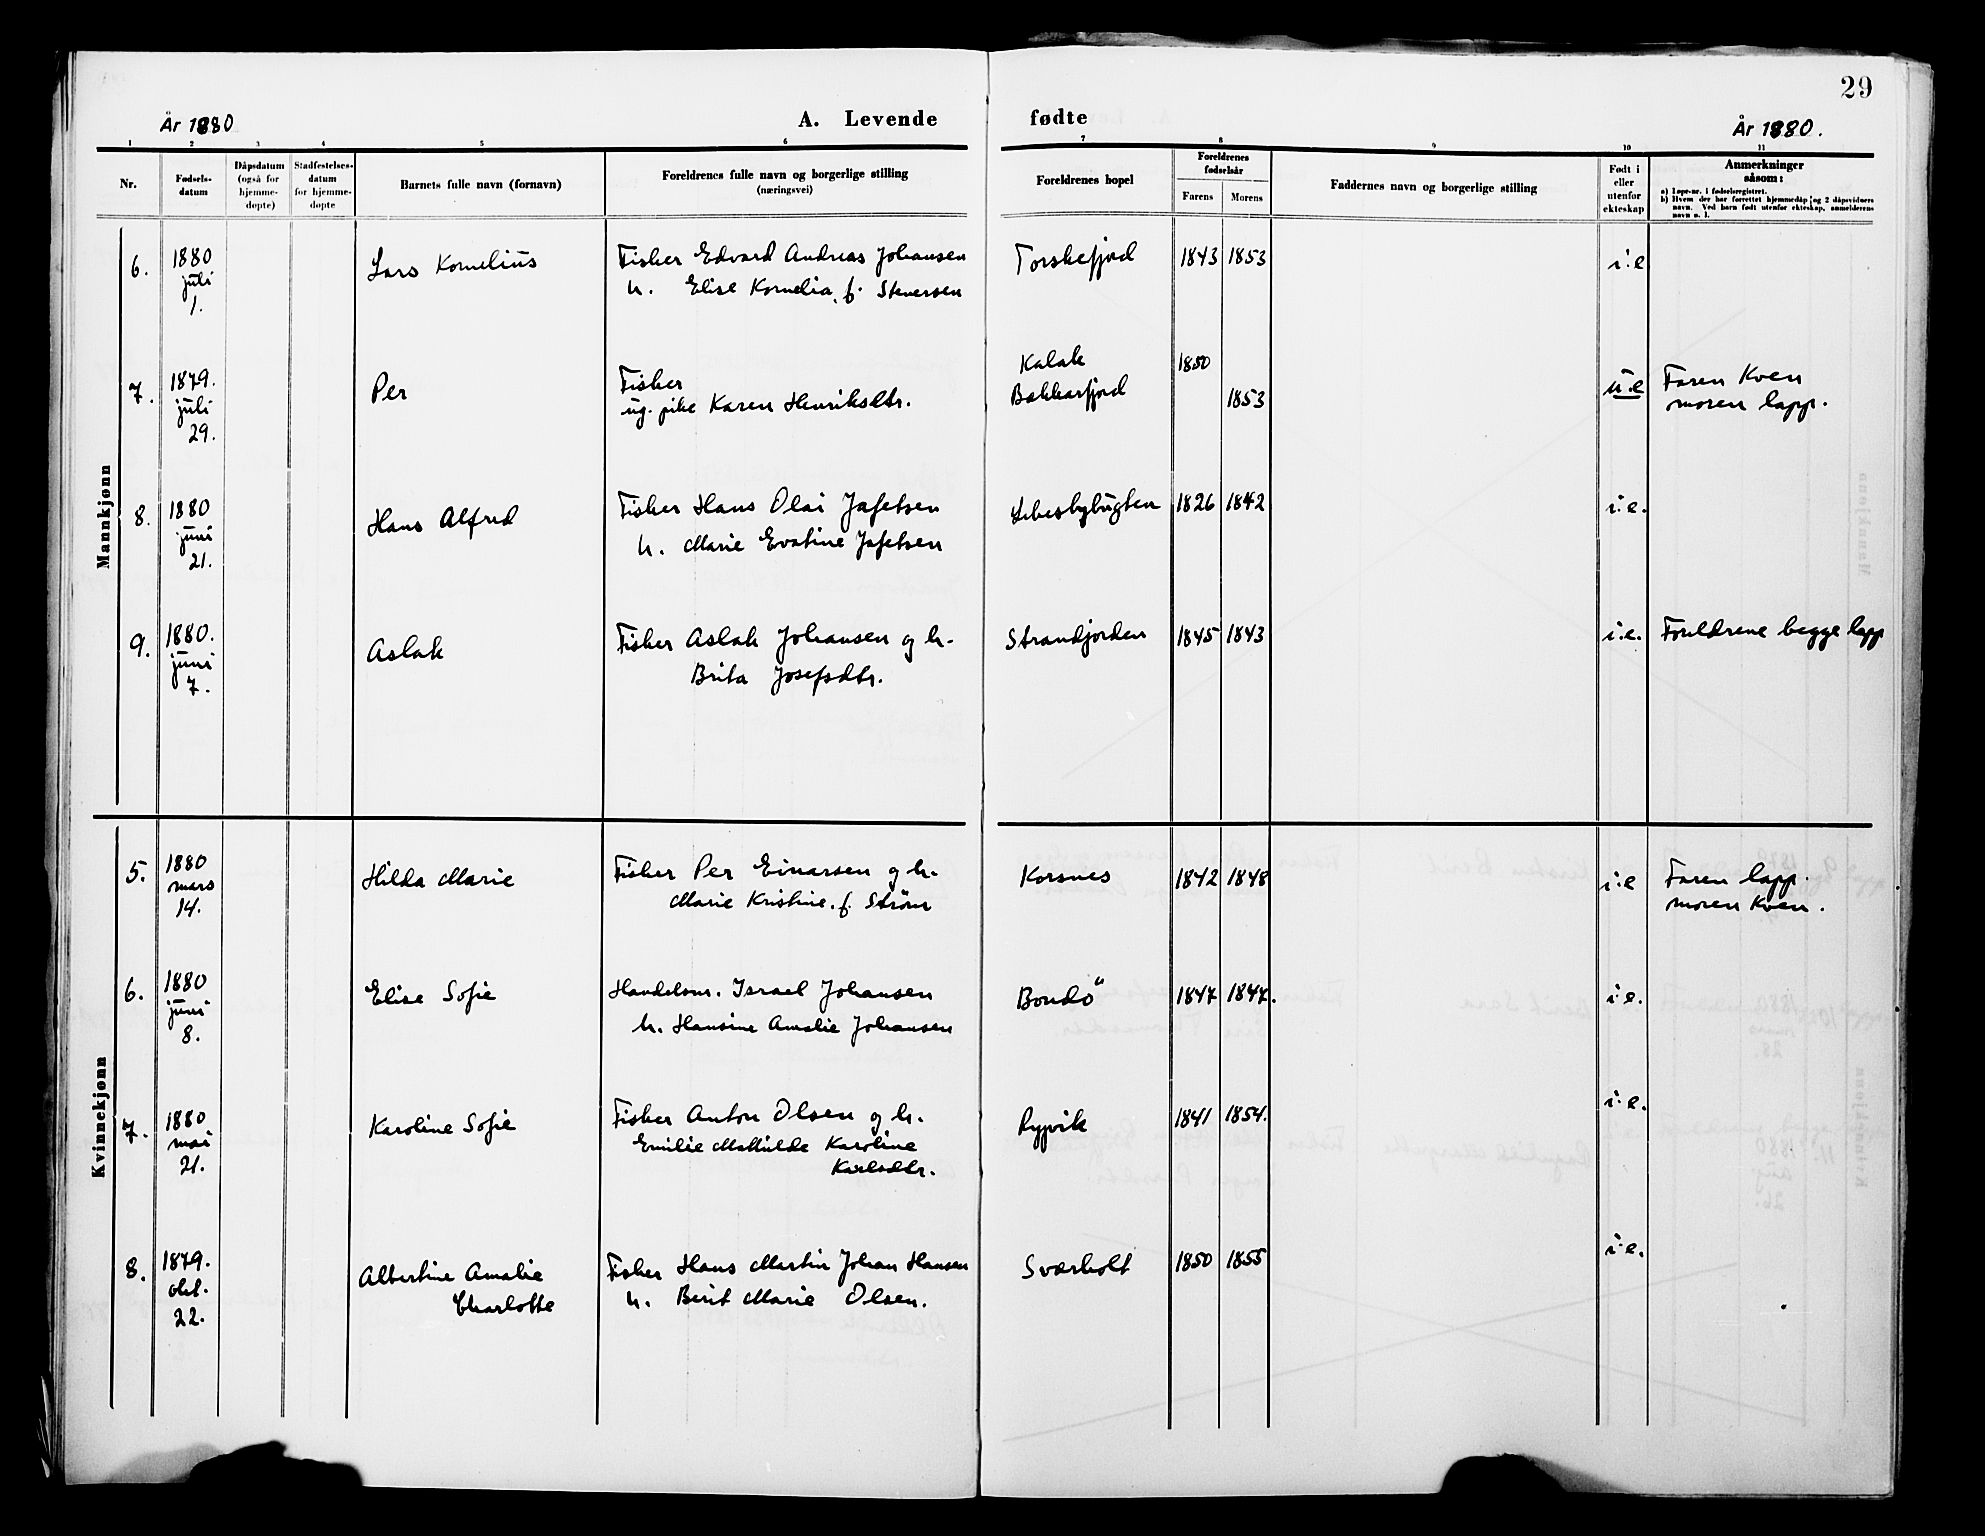 29
År 1880
A. Levende
fødte
År 1880.
1 2 3 4 5 6 7 8 9 10 11
Nr.
Fødsels-
datum
Dåpsdatum
(også for
hjemme-
døpte)
Stadfestelses-
datum
for hjemme-
døpte
Barnets fulle navn (fornavn)
Foreldrenes fulle navn og borgerlige stilling
(næringsvei)
Foreldrenes bopel
Foreldrenes
fødselsår
Farens
Morens
Faddernes navn og borgerlige stilling
Født i
eller
utenfor
ekteskap
Anmerkninger
såsom:
a) Løpe-nr. i fødselsregistret.
b) Hvem der har forrettet hjemmedåp og 2 dåpsvidners
navn. Ved barn født utenfor ekteskap, anmelderens
navn o. l.
Mannkjønn
6.
1880
juli
1.
Lars Kornelius
Fisker Edvard Andreas Johansen
h. Elise Kornelia, f. Stenersen
Torskefjord
1843 1853
i.e
7.
1879.
juli
29.
Per
Fisker
ug. pike Karen Henriksdtr.
Kalak
Bakkarfjord
1850
1853
u.e
Faren Kven
moren lapp.
8.
1880
juni
21.
Hans Alfred
Fisker Hans Olai Jafetsen
h. Marie Evatine Jafetsen
Lebesbybugten
1826 1842
i.e.
9.
1880.
juni
7.
Aslak
Fisker Aslak Johansen og h.
Brita Josefsdtr.
Strandjorden
1845 1843
i.e.
Foreldrene begge lapp
Kvinnekjønn
5.
1880
mars
14.
Hilda Marie
Fisker Per Einarsen og h.
Marie Kristine, f. Strøm
Korsnes
1842 1848
i.e
Faren lapp.
moren Kven.
6.
1880
juni
8.
Elise Sofie
Handelsm. Israel Johansen
h. Hansine Amalie Johansen
Bondö
1847 1847.
i.e.
7.
1880
mai
21.
Karoline Sofie
Fisker Anton Olsen og h.
Emilie Mathilde Karoline
Karlsdtr.
Rypvik
1841 1854.
i.e.
8.
1879.
okt.
22.
Albertine Amalie
Charlotte
Fisker Hans Martin Johan Hansen
h. Berit Marie Olsen.
Sværholt
1850 1855
i.e.